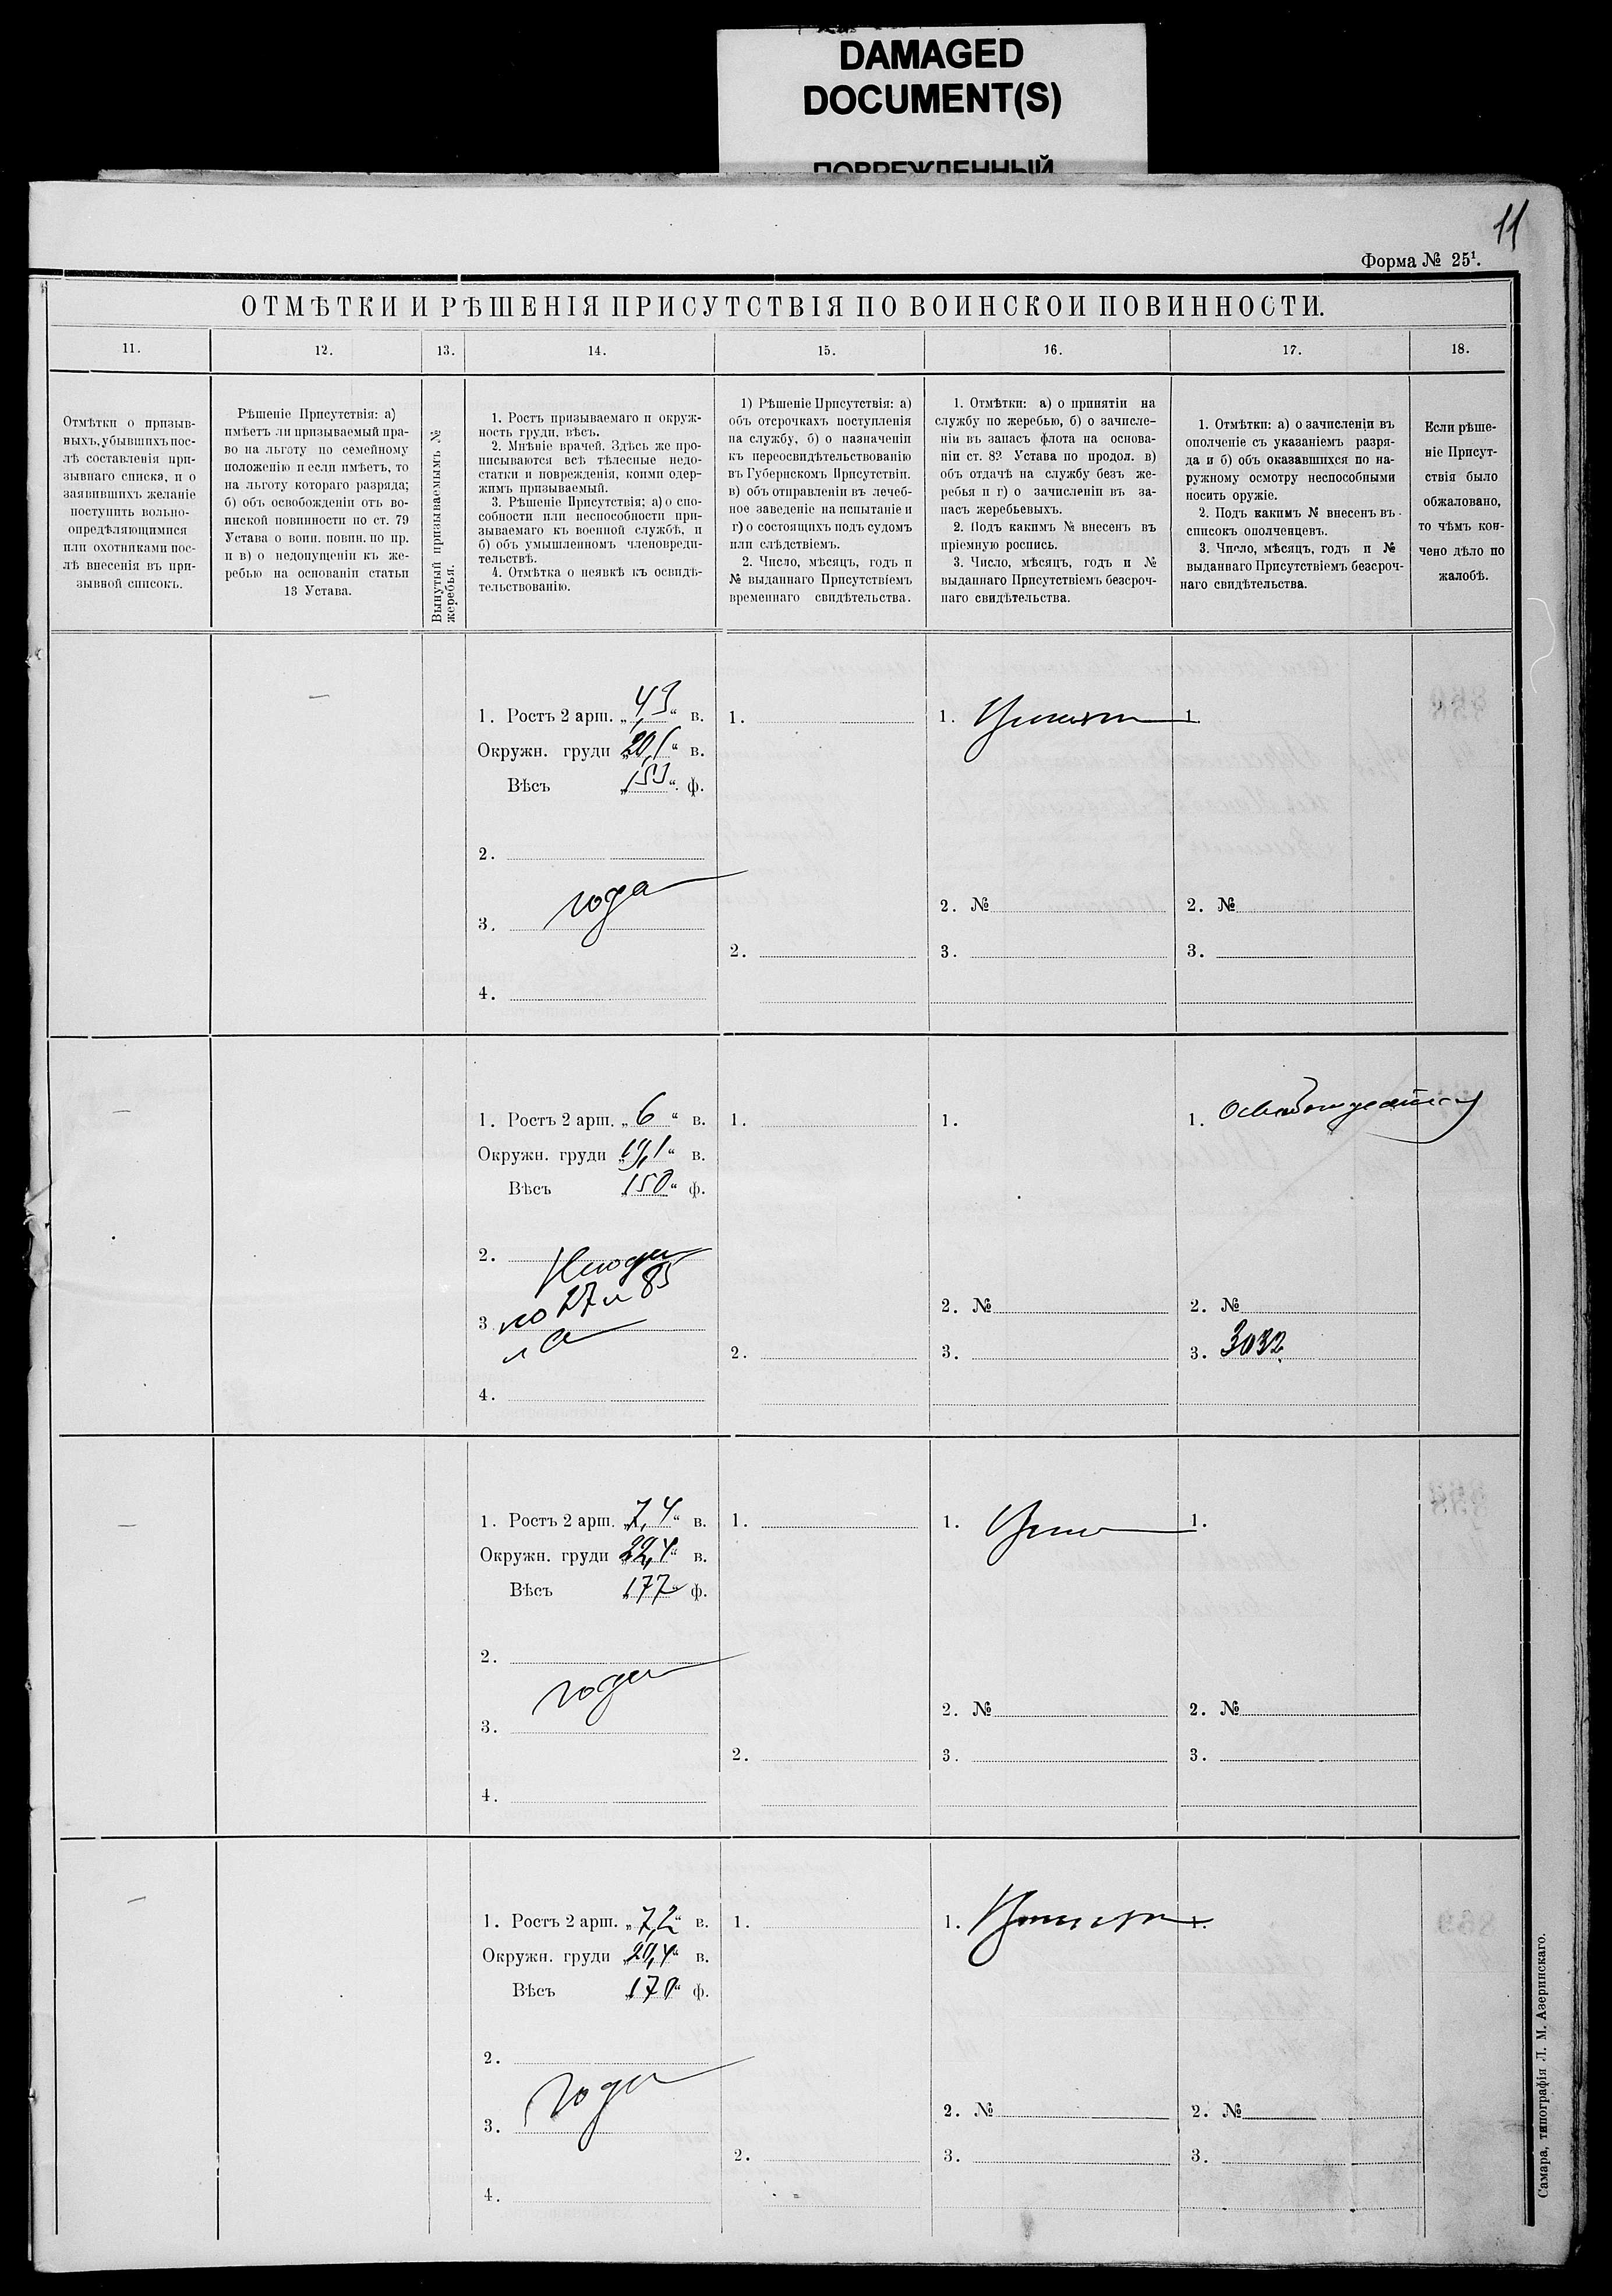 DAMAGED
DOCUMENT(S)
ПОВРЕЖДЕННЫЙ
11
Форма № 25¹.
ОТМѢТКИ И РѢШЕНІЯ ПРИСУТСТВІЯ ПО ВОИНСКОИ ПОВИННОСТИ.
11.
12.
13.
14.
15.
16.
17.
18.
Отмѣтки о призыв-
ныхъ, убывшихъ пос-
лѣ составленія при-
зывнаго списка, и о
заявившихъ желаніе
поступить вольно-
опредѣляющимися
или охотниками пос-
лѣ внесенія въ при-
зывной списокъ.
Рѣшеніе Присутствія: а)
имѣетъ ли призываемый пра-
во на льготу по семейному
положенію и если имѣетъ, то
на льготу котораго разряда;
б) объ освобожденіи отъ во-
инской повинности по ст. 79
Устава о воин. повин. по пр.
и в) о недопущеніи къ же-
ребью на основаніи статьи
13 Устава.
Вынутый призываемымъ №
жеребья.
1. Ростъ призываемаго и окруж-
ность груди, вѣсъ.
2. Мнѣніе врачей. Здѣсь же про-
писываются всѣ тѣлесные недо-
статки и поврежденія, коими одер-
жимъ призываемый.
3. Рѣшеніе Присутствія; а) о спо-
собности или неспособности при-
зываемаго къ военной службѣ, и
б) объ умышленномъ членовреди-
тельствѣ.
4. Отмѣтка о неявкѣ къ освидѣ-
тельствованію.
1) Рѣшеніе Присутствія: а)
объ отсрочкахъ поступленія
на службу, б) о назначеніи
къ переосвидѣтельствованію
въ Губернскомъ Присутствіи.
в) объ отправленіи въ лечеб-
ное заведеніе на испытаніе и
г) о состоящихъ подъ судомъ
или слѣдствіемъ.
2. Число, мѣсяцъ, годъ и
№ выданнаго Присутствіемъ
временнаго свидѣтельства.
1. Отмѣтки: а) о принятіи на
службу по жеребью, б) о зачисле-
ніи въ запасъ флота на основа-
ніи ст. 82 Устава по продол. в)
объ отдачѣ на службу безъ же-
ребья и г) о зачисленіи въ за-
пасъ жеребьевыхъ.
2. Подъ какимъ № внесенъ въ
пріемную роспись.
3. Число, мѣсяцъ, годъ и №
выданнаго Присутствіемъ безсроч-
наго свидѣтельства.
1. Отмѣтки: а) о зачисленіи въ
ополченіе съ указаніемъ разря-
да и б) объ оказавшихся по на-
ружному осмотру неспособными
носить оружіе.
2. Подъ какимъ № внесенъ въ
списокъ ополченцевъ.
3. Число, мѣсяцъ, годъ и №
выданнаго Присутствіемъ безсроч-
наго свидѣтельства.
Если рѣше-
ніе Присут-
ствія было
обжаловано,
то чѣмъ кон-
чено дѣло по
жалобѣ.
1. Ростъ 2 арш. „4,3“ в.
Окружн. груди „20,1“ в.
Вѣсъ „153“ ф.
2.
3. года
4.
1.
2.
1. Принят
2. №
3.
1.
2. №
3.
1. Ростъ 2 арш. „6“ в.
Окружн. груди „19,1“ в.
Вѣсъ „150“ ф.
2. Негоден
3. по 27 и 85
л а
4.
1.
2.
1.
2. №
3.
1. Освобождается
2. №
3. 3032
1. Ростъ 2 арш. „7,4“ в.
Окружн. груди „22,4“ в.
Вѣсъ „177“ ф.
2.
3. годен
4.
1.
2.
1. Прин
2. №
3.
1.
2. №
3.
1. Ростъ 2 арш. „7,2“ в.
Окружн. груди „20,4“ в.
Вѣсъ „170“ ф.
2.
3. годен
4.
1.
2.
1. Принят
2. №
3.
1.
2. №
3.
Самара, типографія Л. М. Азеринскаго.